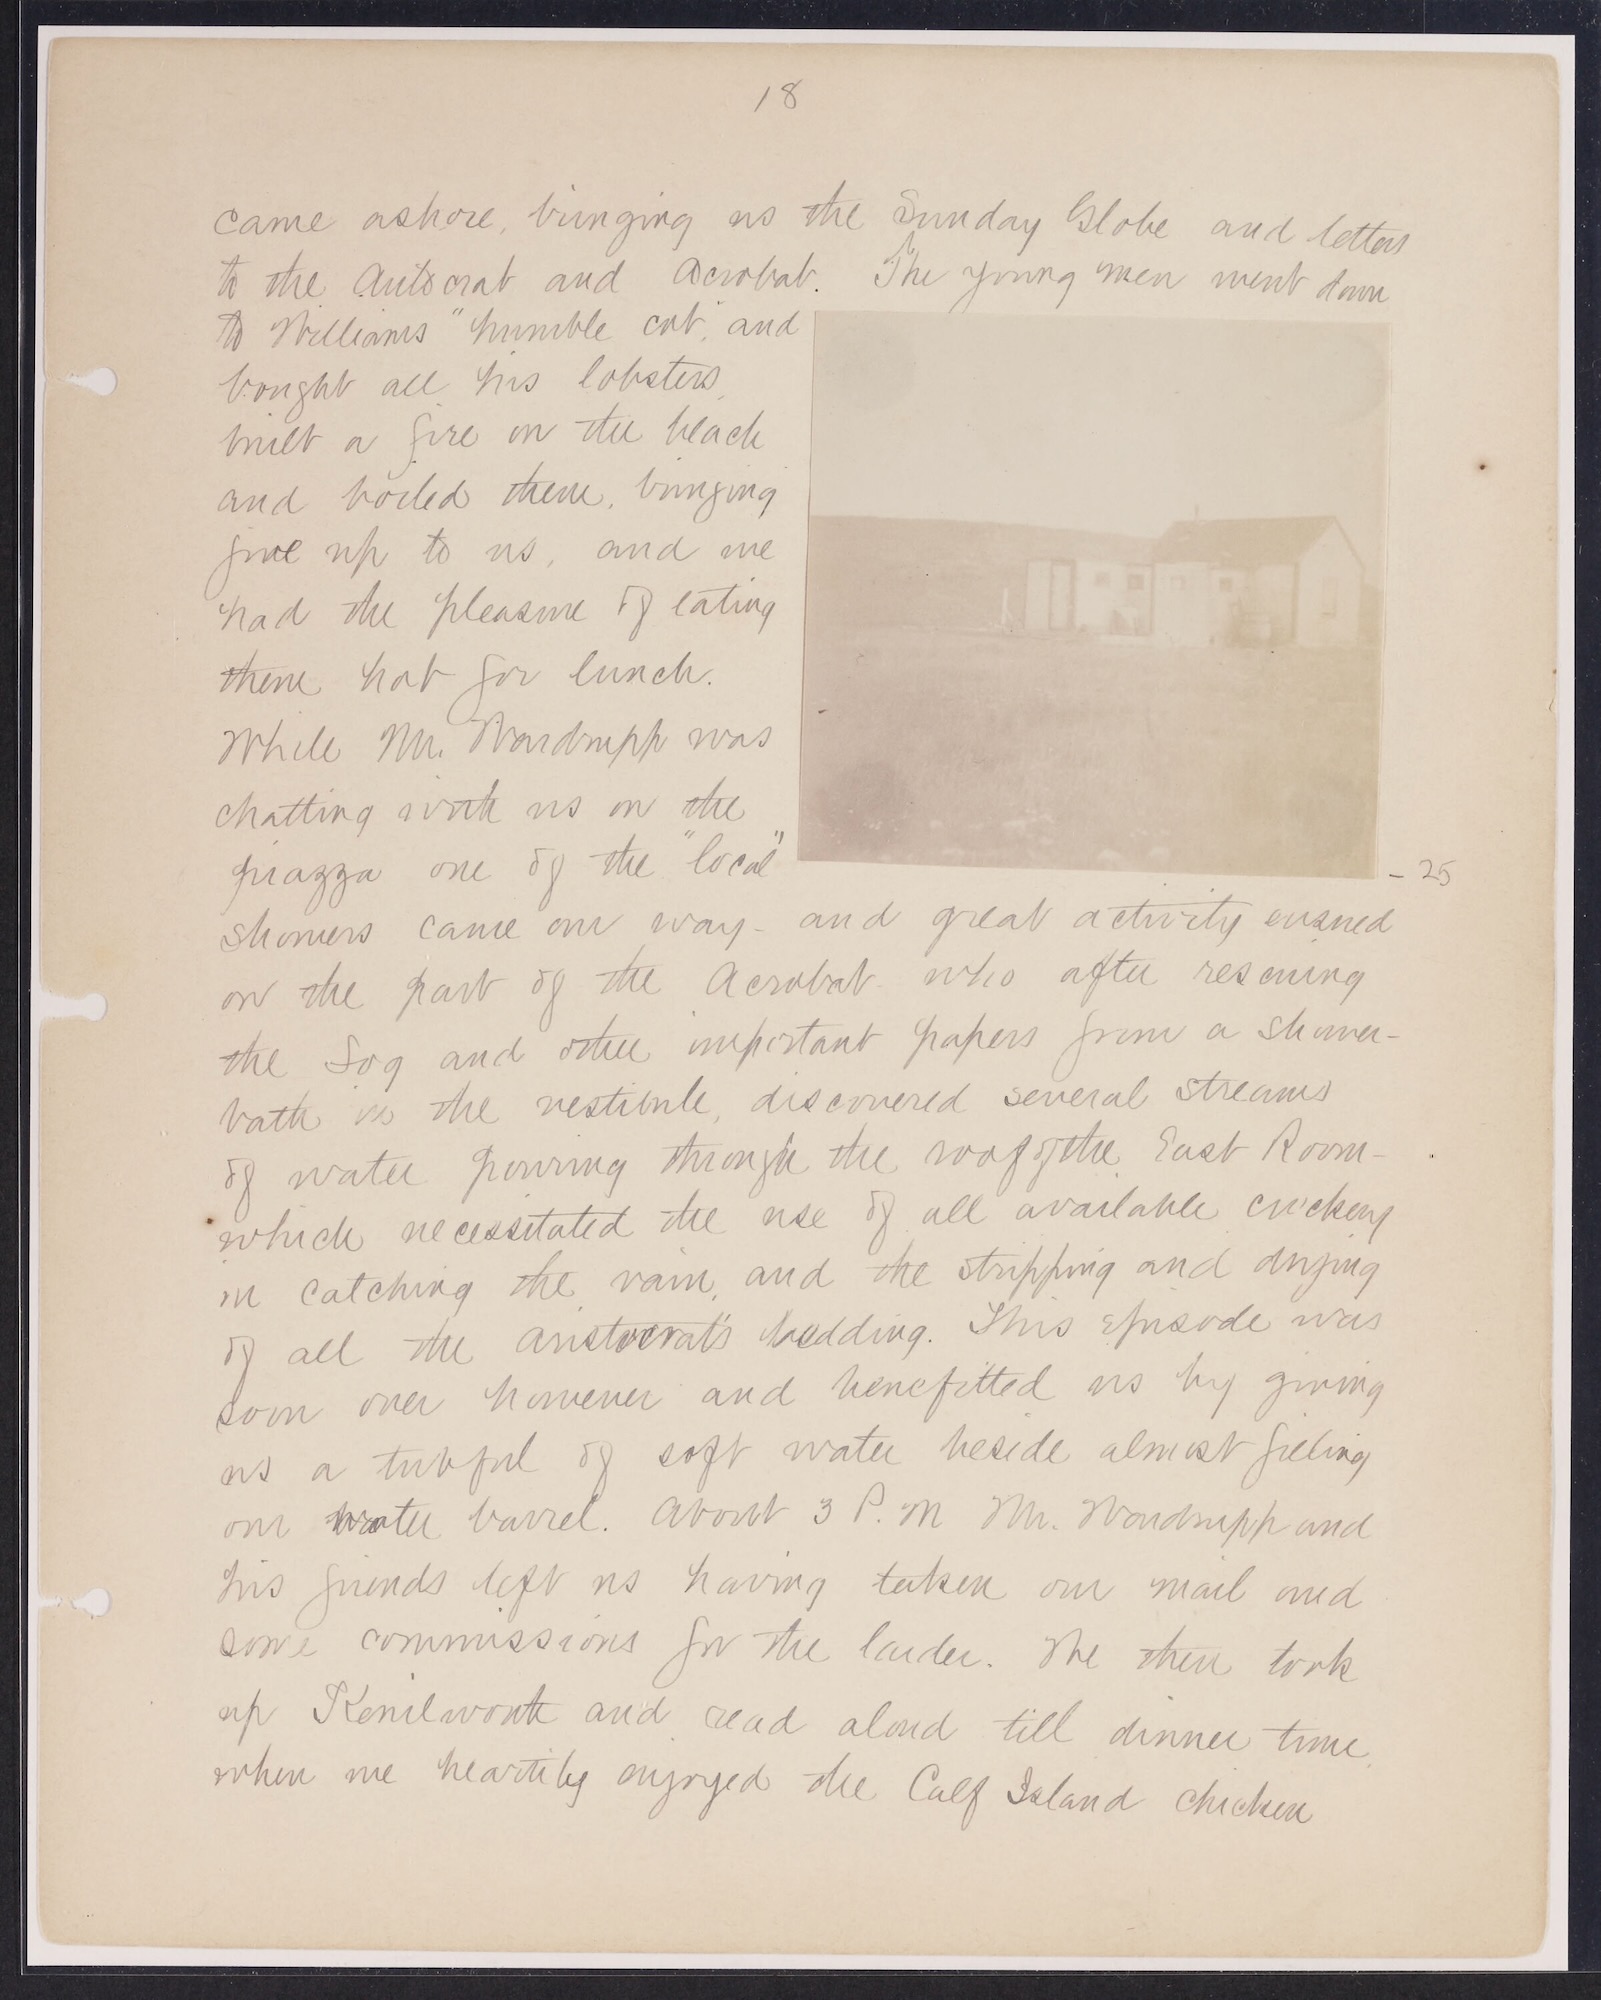 18
came ashore, bringing us the Sunday Globe and letters
to the Autocrat and Acrobat. The young men went down
to Williams "humble cot", and
bought all his lobsters,
built a fire on the beach
and boiled them, bringing
five up to us, and we
had the pleasure of eating
them hot for lunch.
While Mr. Wardrupp was
chatting with us on the
piazza one of the "local"
showers came our way - and great activity ensued
on the part of the Acrobat who after rescuing
the Log and other important papers from a shower-
bath in the vestibule, discovered several streams
of water pouring through the roof of the East Room -
which necessitated the use of all available crockery
in catching the rain, and the stripping and drying
of all the aristocrat's bedding. This episode was
soon over however and benefitted us by giving
us a tubful of soft water beside almost filling
our water barrel. About 3 P. M Mr. Wardrupp and
his friends left us having taken our mail and
some commissions for the larder. We then took
up Kenilworth and read aloud till dinner time,
when we heartily enjoyed the Calf Island chicken
- 25